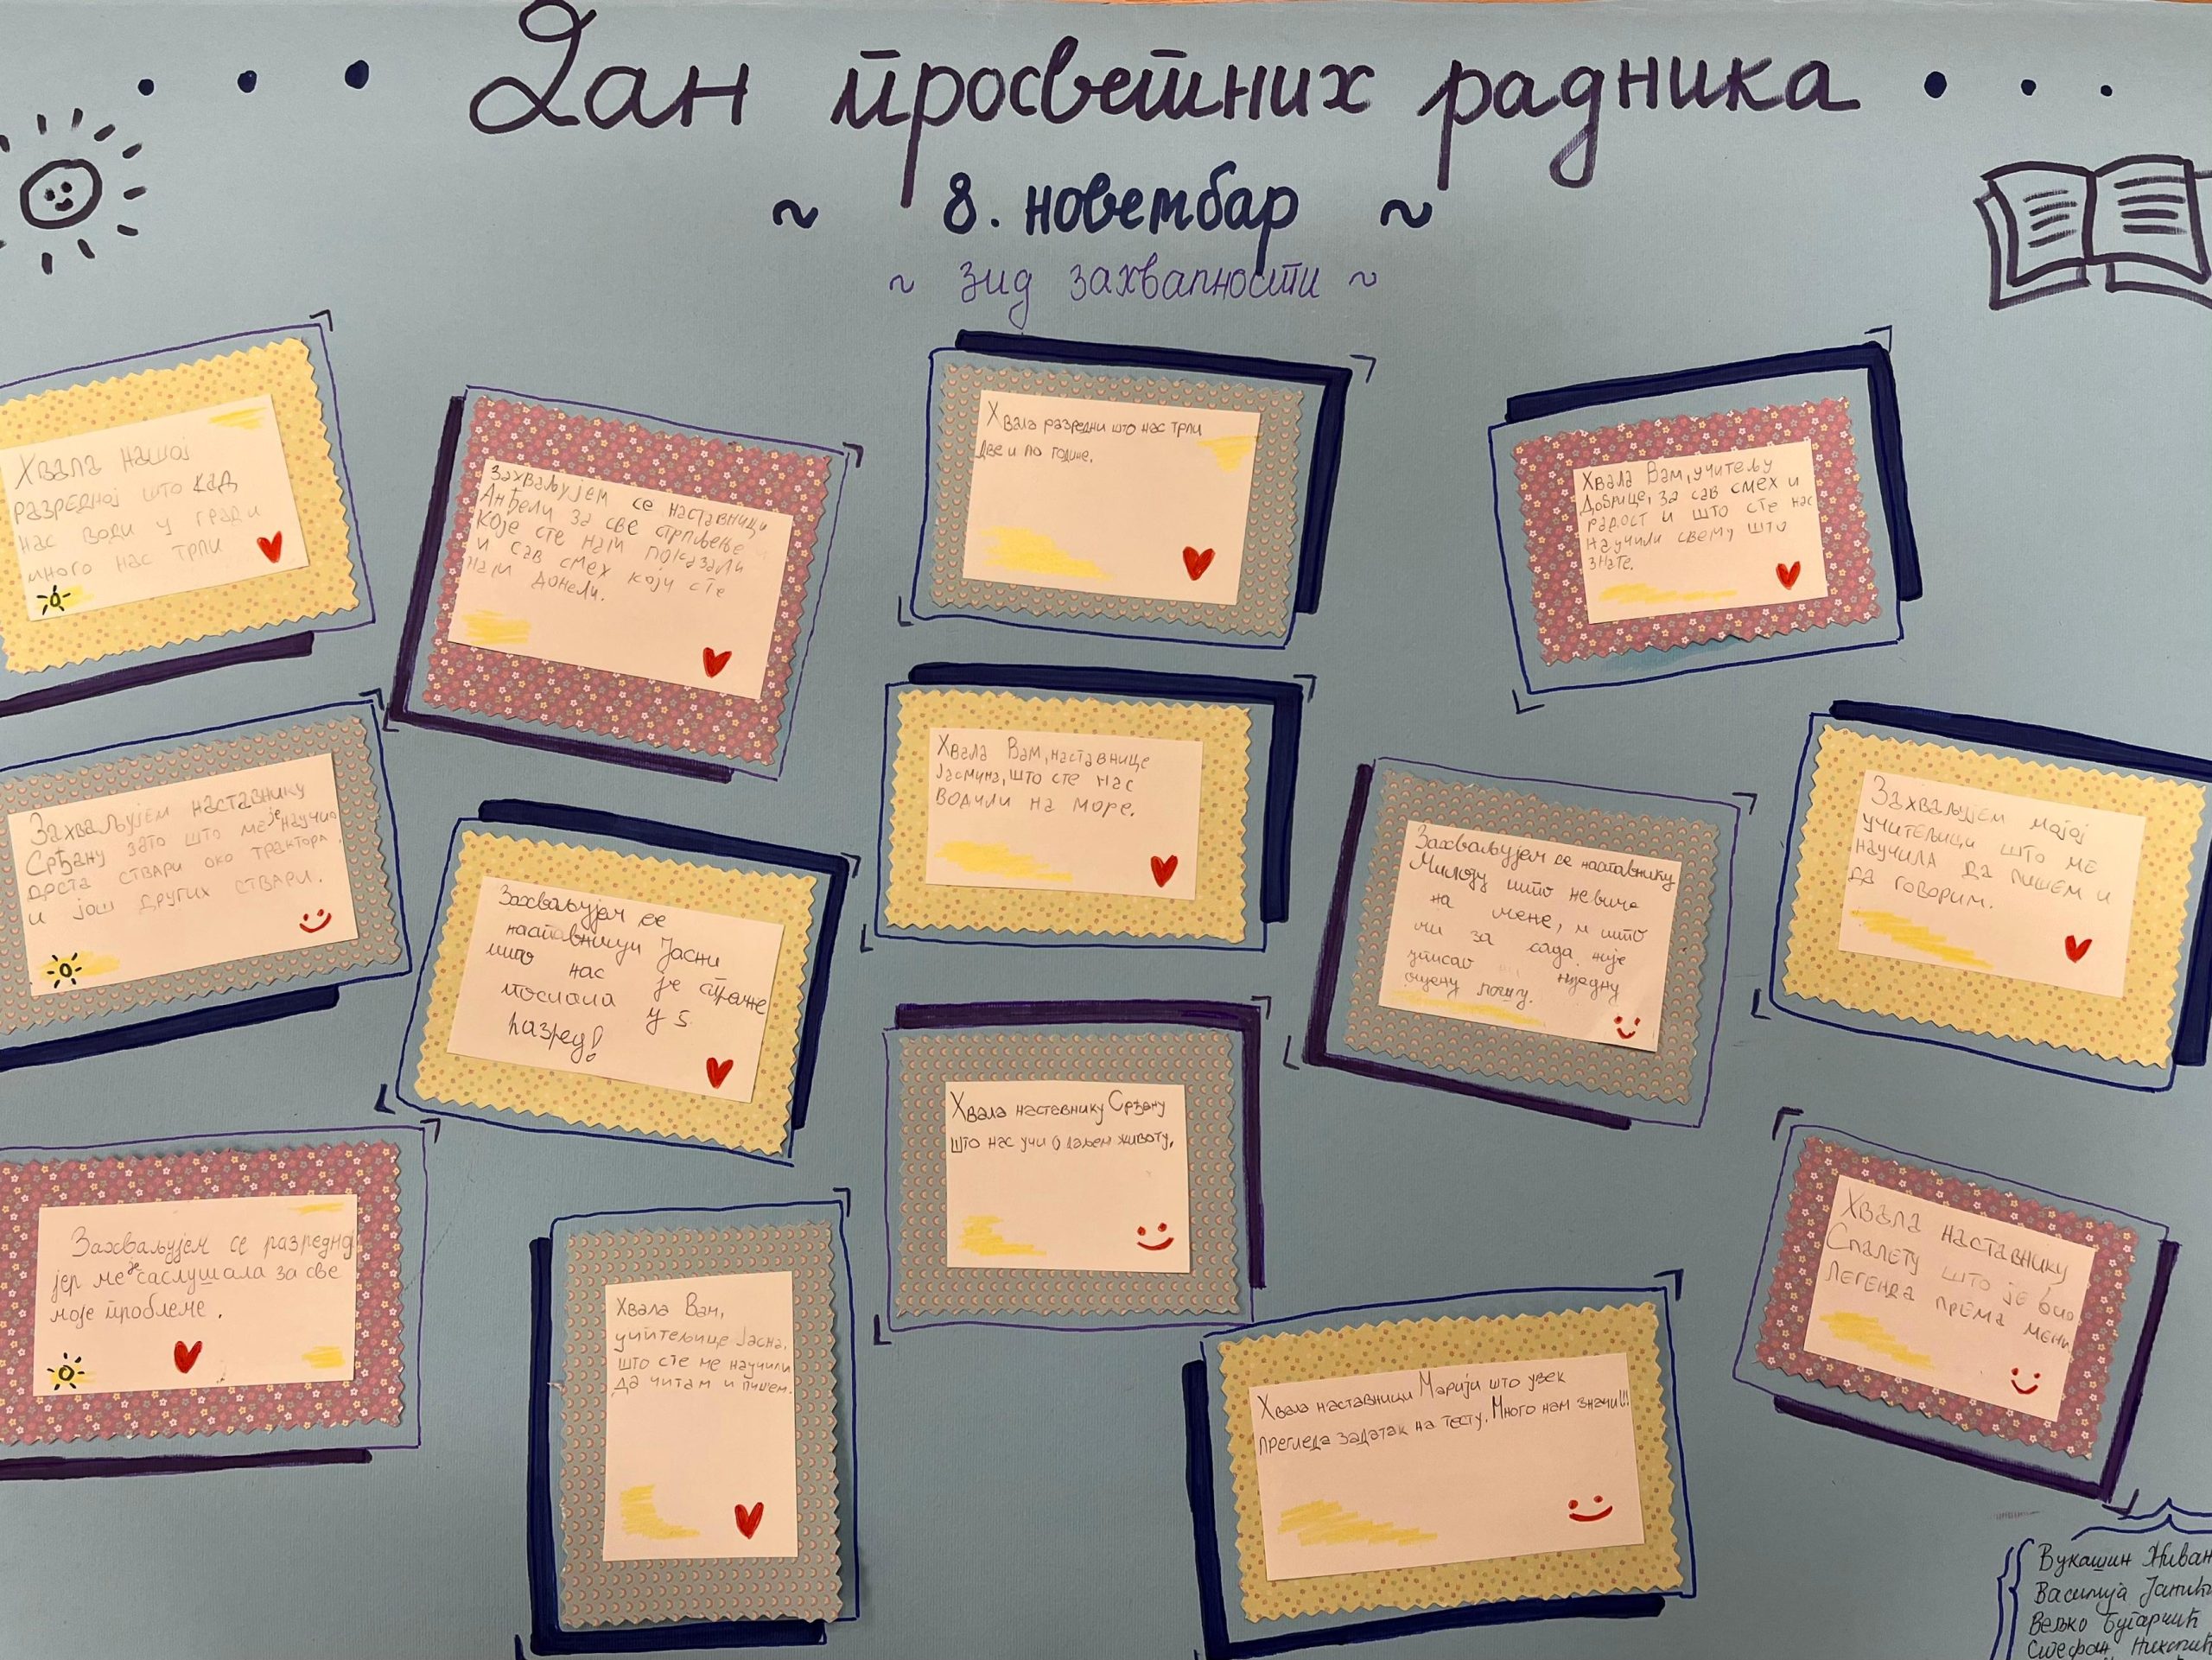 Дан просветних радника
~ 8. новембар ~
~ зид захвалности ~
Хвала нашој
разредној што кад
нас води у гради
много нас трпи
Захваљујем се наставници
Анђели за све стрпљење
које сте нам показали
и сав смех који сте
нам донели.
Хвала разредни што нас трпи
две и по године.
Хвала Вам, учитељу
Добрице, за сав смех и
радост и што сте нас
научили свему што
знате.
Захваљујем наставнику
Срђану зато што ме је научио
доста ствари око трактора
и још других ствари.
Захваљујем се
наставници Јасни
што нас је
послала у 5.
разред!
Хвала Вам, наставнице
Јасмина, што сте нас
водили на море.
Захваљујем се наставнику
Милоју што не виче
на мене, и што
ми за сада није
уписао ниједну
оцену лошу.
Захваљујем мојој
учитељици што ме
научила да пишем и
да говорим.
Захваљујем се разредној
јер ме је саслушала за све
моје проблеме.
Хвала Вам,
учитељице Јасна,
што сте ме научили
да читам и пишем.
Хвала наставнику Срђану
што нас учи о даљем животу.
Хвала наставници Марији што увек
прегледа задатак на тесту. Много нам значи!!!
Хвала наставнику
Спалету што је био
легенда према мени
Вукашин Живан
Василија Јанић
Вељко Бугарчић
Стефан Николић